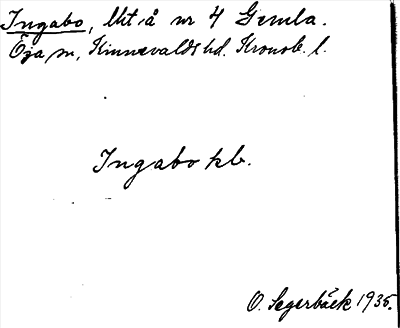 Ingabo, Ut. å nr 4 Gemla.
Öja sn, Kinnevalds hd. Kronob. l.
Ingabo kb.
O. Segerbäck 1935.